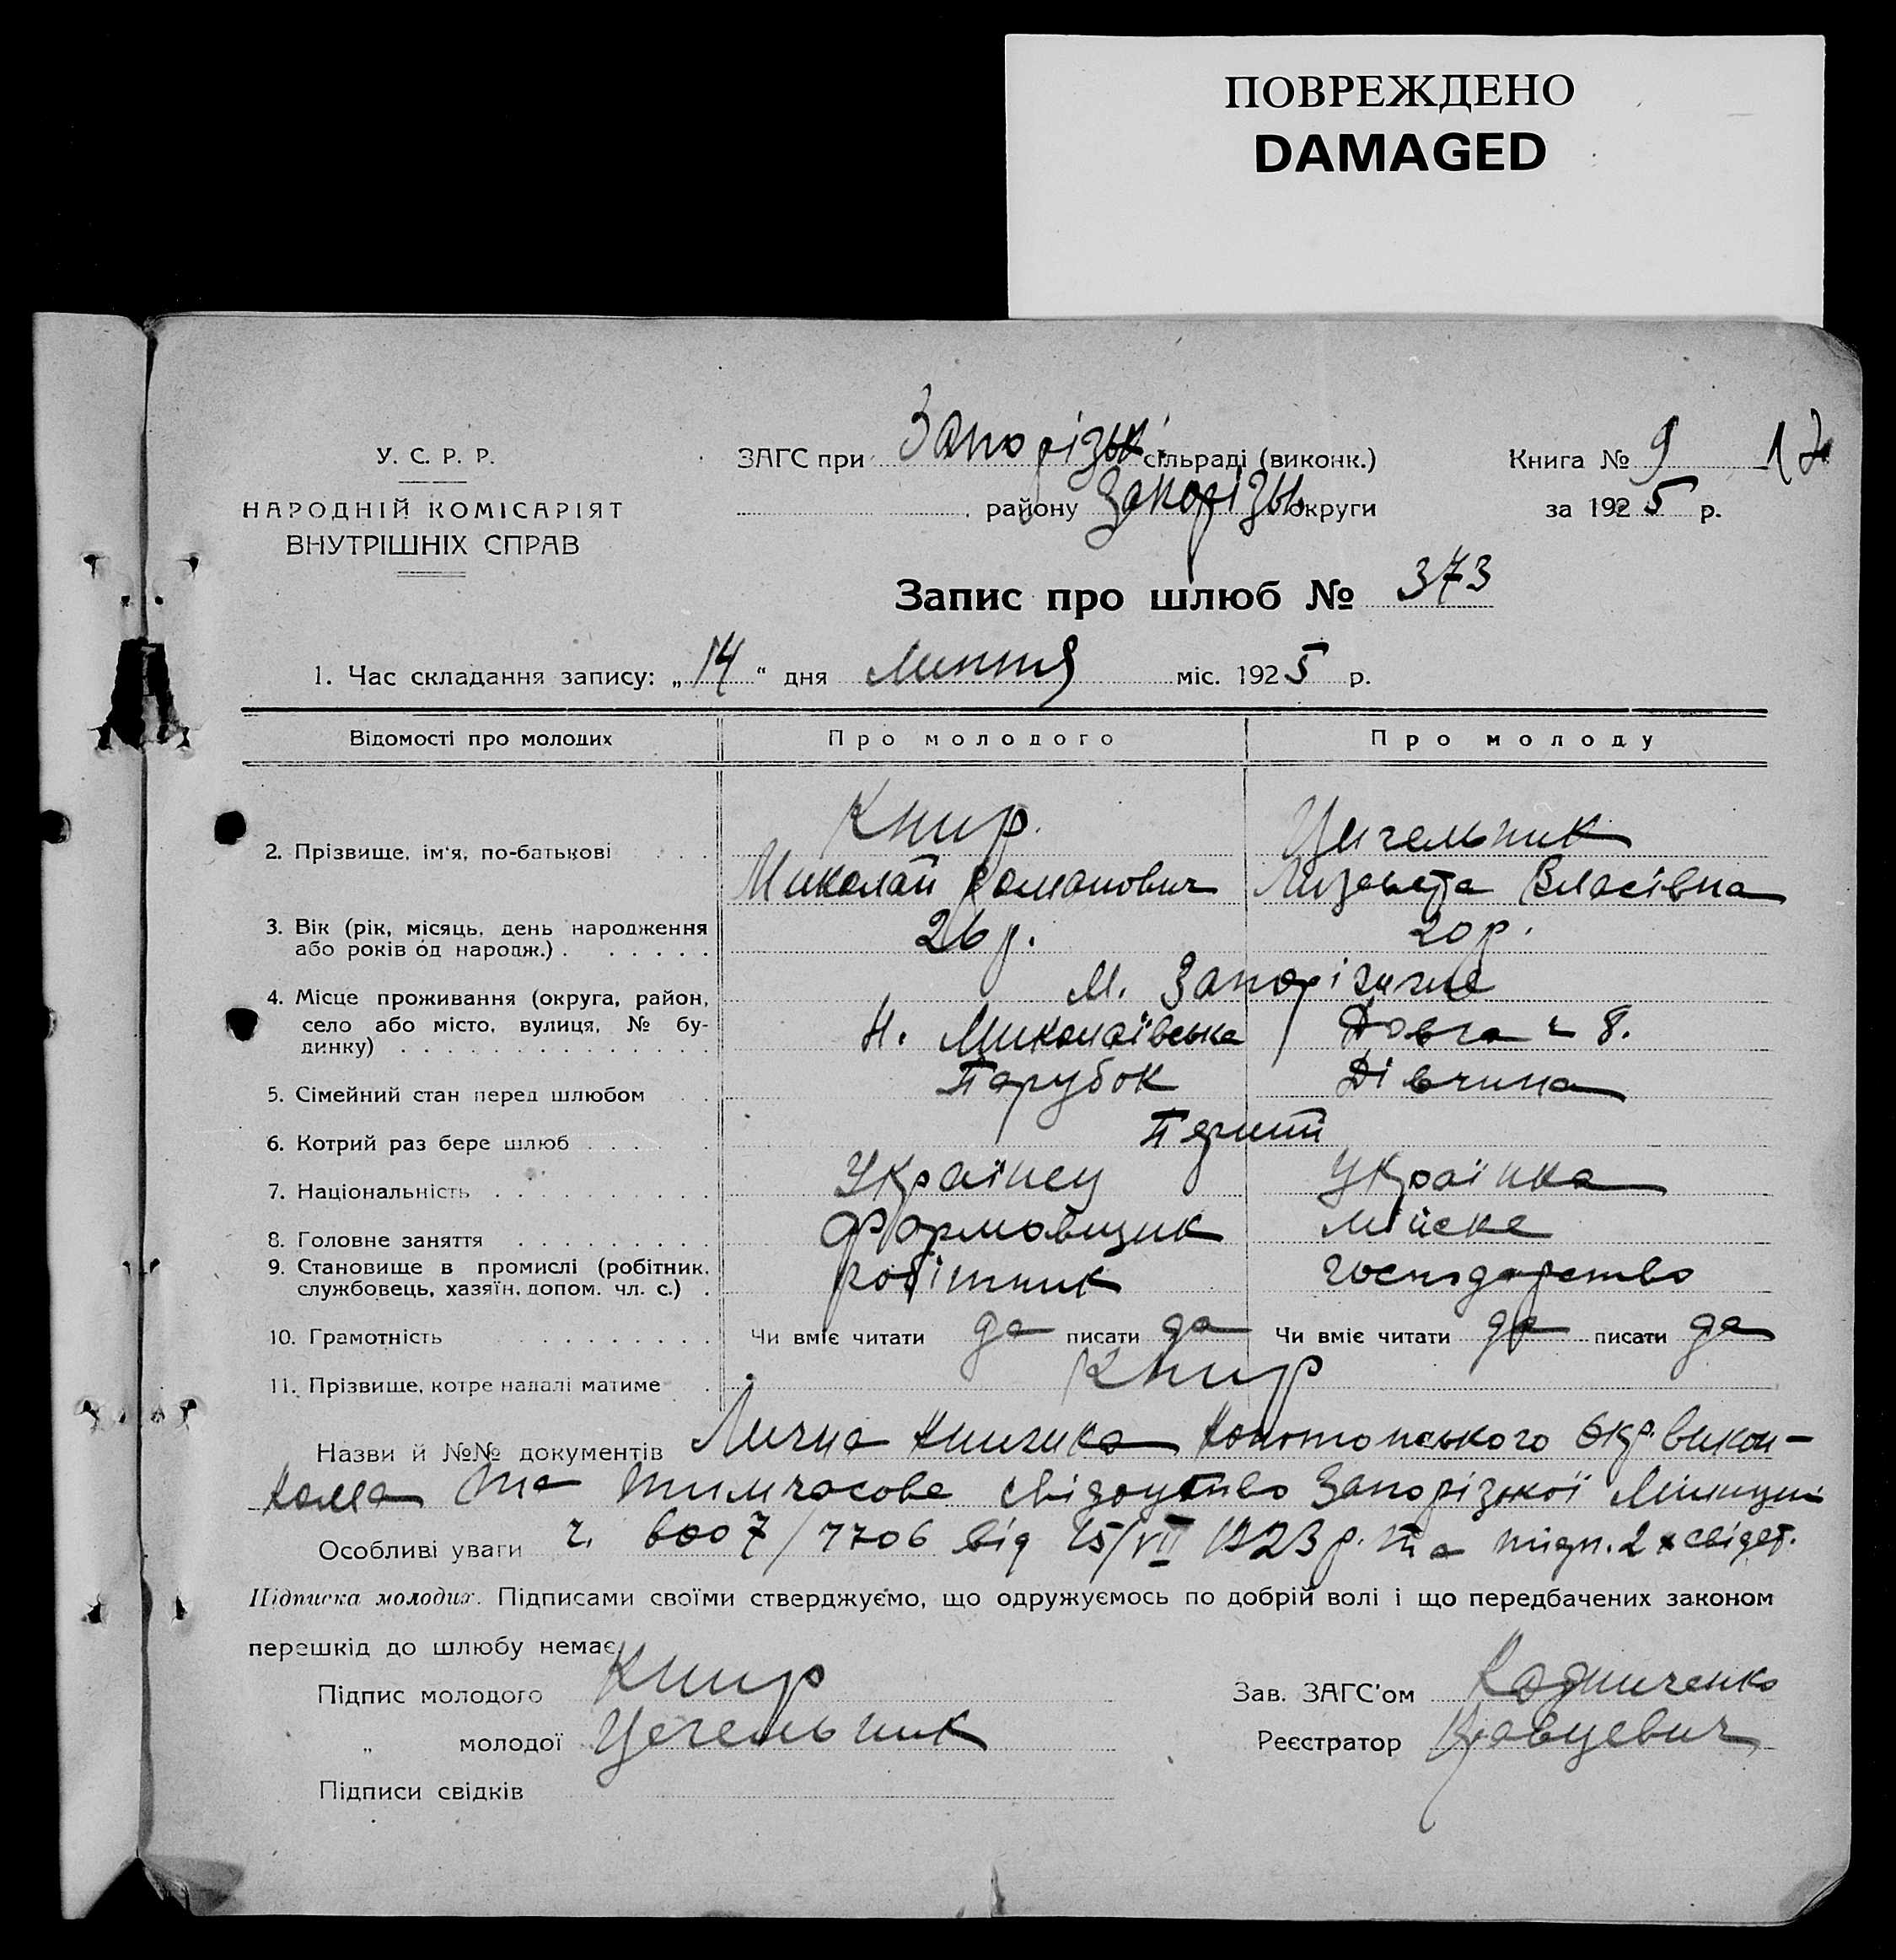 ПОВРЕЖДЕНО
DAMAGED
У. С. Р. Р.
НАРОДНІЙ КОМІСАРІЯТ
ВНУТРІШНІХ СПРАВ
ЗАГС при Запорізьк. сільраді (виконк.)
району Запорізьк округи
Книга № 9 17
за 1925 р.
Запис про шлюб № 373
1. Час складання запису: „14“ дня Липня міс. 1925 р.
Відомості про молодих Про молодого Про молоду
Книр Цигельник
2. Прізвище, ім'я, по-батькові
Миколай Романович Лизавета Власівна
3. Вік (рік, місяць, день народження
або років од народж.) 26 р. 20 р.
4. Місце проживання (округа, район, м. Запоріжжє
село або місто, вулиця, № бу-
динку) Н. Миколаївська / Довга ч 8.
5. Сімейний стан перед шлюбом Парубок Дівчина
6. Котрий раз бере шлюб Перший
7. Національність Українец Українка
8. Головне заняття Формовщик Міське
9. Становище в промислі (робітник,
службовець, хазяїн, допом. чл. с.) робітник господарство
10. Грамотність Чи вміє читати да писати да Чи вміє читати да писати да
11. Прізвище, котре надалі матиме Книр
Назви й №№ документів Лична книжка Конотопського Окр. викон-
кома та тимчасове свідоцтво Запорізької Міліции
Особливі уваги ч. 6007/7706 від 15/VII 1923 р. та підп. 2х свідет.
Підписка молодих. Підписами своїми стверджуємо, що одружуємось по добрій волі і що передбачених законом
перешкід до шлюбу немає
Підпис молодого Книр Зав. ЗАГС'ом
„ молодої Цегельник Реєстратор Кравцевич
Підписи свідків